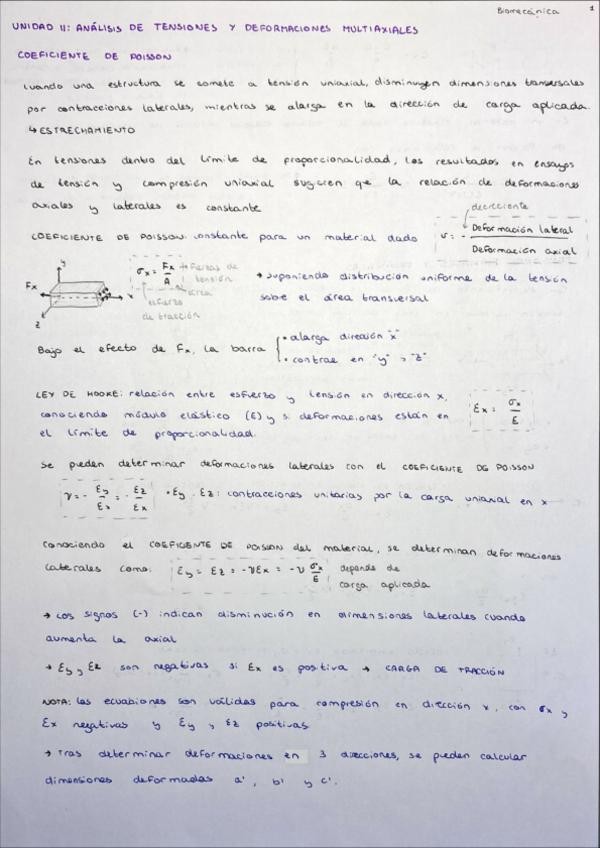 Biomecánica
1
UNIDAD II: ANÁLISIS DE TENSIONES Y DEFORMACIONES MULTIAXIALES
COEFICIENTE DE POISSON
Cuando una estructura se somete a tensión uniaxial, disminuyen dimensiones transversales
por contracciones laterales, mientras se alarga en la dirección de carga aplicada.
↳ ESTRECHAMIENTO
En tensiones dentro del límite de proporcionalidad, los resultados en ensayos
de tensión y compresión uniaxial sugieren que la relación de deformaciones
axiales y laterales es constante
decreciente
COEFICIENTE DE POISSON: constante para un material dado
ν = - Deformación lateral / Deformación axial
y
Fx
x
z
σx = Fx / A
→ fuerzas de tensión
→ área
esfuerzo de tracción
→ suponiendo distribución uniforme de la tensión
sobre el área transversal
Bajo el efecto de Fx, la barra
• alarga dirección "x"
• contrae en "y" y "z"
LEY DE HOOKE: relación entre esfuerzo y tensión en dirección x,
conociendo módulo elástico (E) y si deformaciones están en
el límite de proporcionalidad.
Ɛx = σx / E
Se pueden determinar deformaciones laterales con el COEFICIENTE DE POISSON
ν = - Ɛy / Ɛx = - Ɛz / Ɛx
• Ɛy . Ɛz : contracciones unitarias por la carga uniaxial en x
Conociendo el COEFICIENTE DE POISSON del material, se determinan deformaciones
laterales como:
Ɛy = Ɛz = -νƐx = -ν σx / E
depende de
carga aplicada
→ Los signos (-) indican disminución en dimensiones laterales cuando
aumenta la axial
→ Ɛy y Ɛz son negativas si Ɛx es positiva → CARGA DE TRACCIÓN
NOTA: las ecuabiones son válidas para compresión en dirección x, con σx y
Ɛx negativas y Ɛy y Ɛz positivas
→ Tras determinar deformaciones en 3 direcciones, se pueden calcular
dimensiones deformadas a', b' y c'.